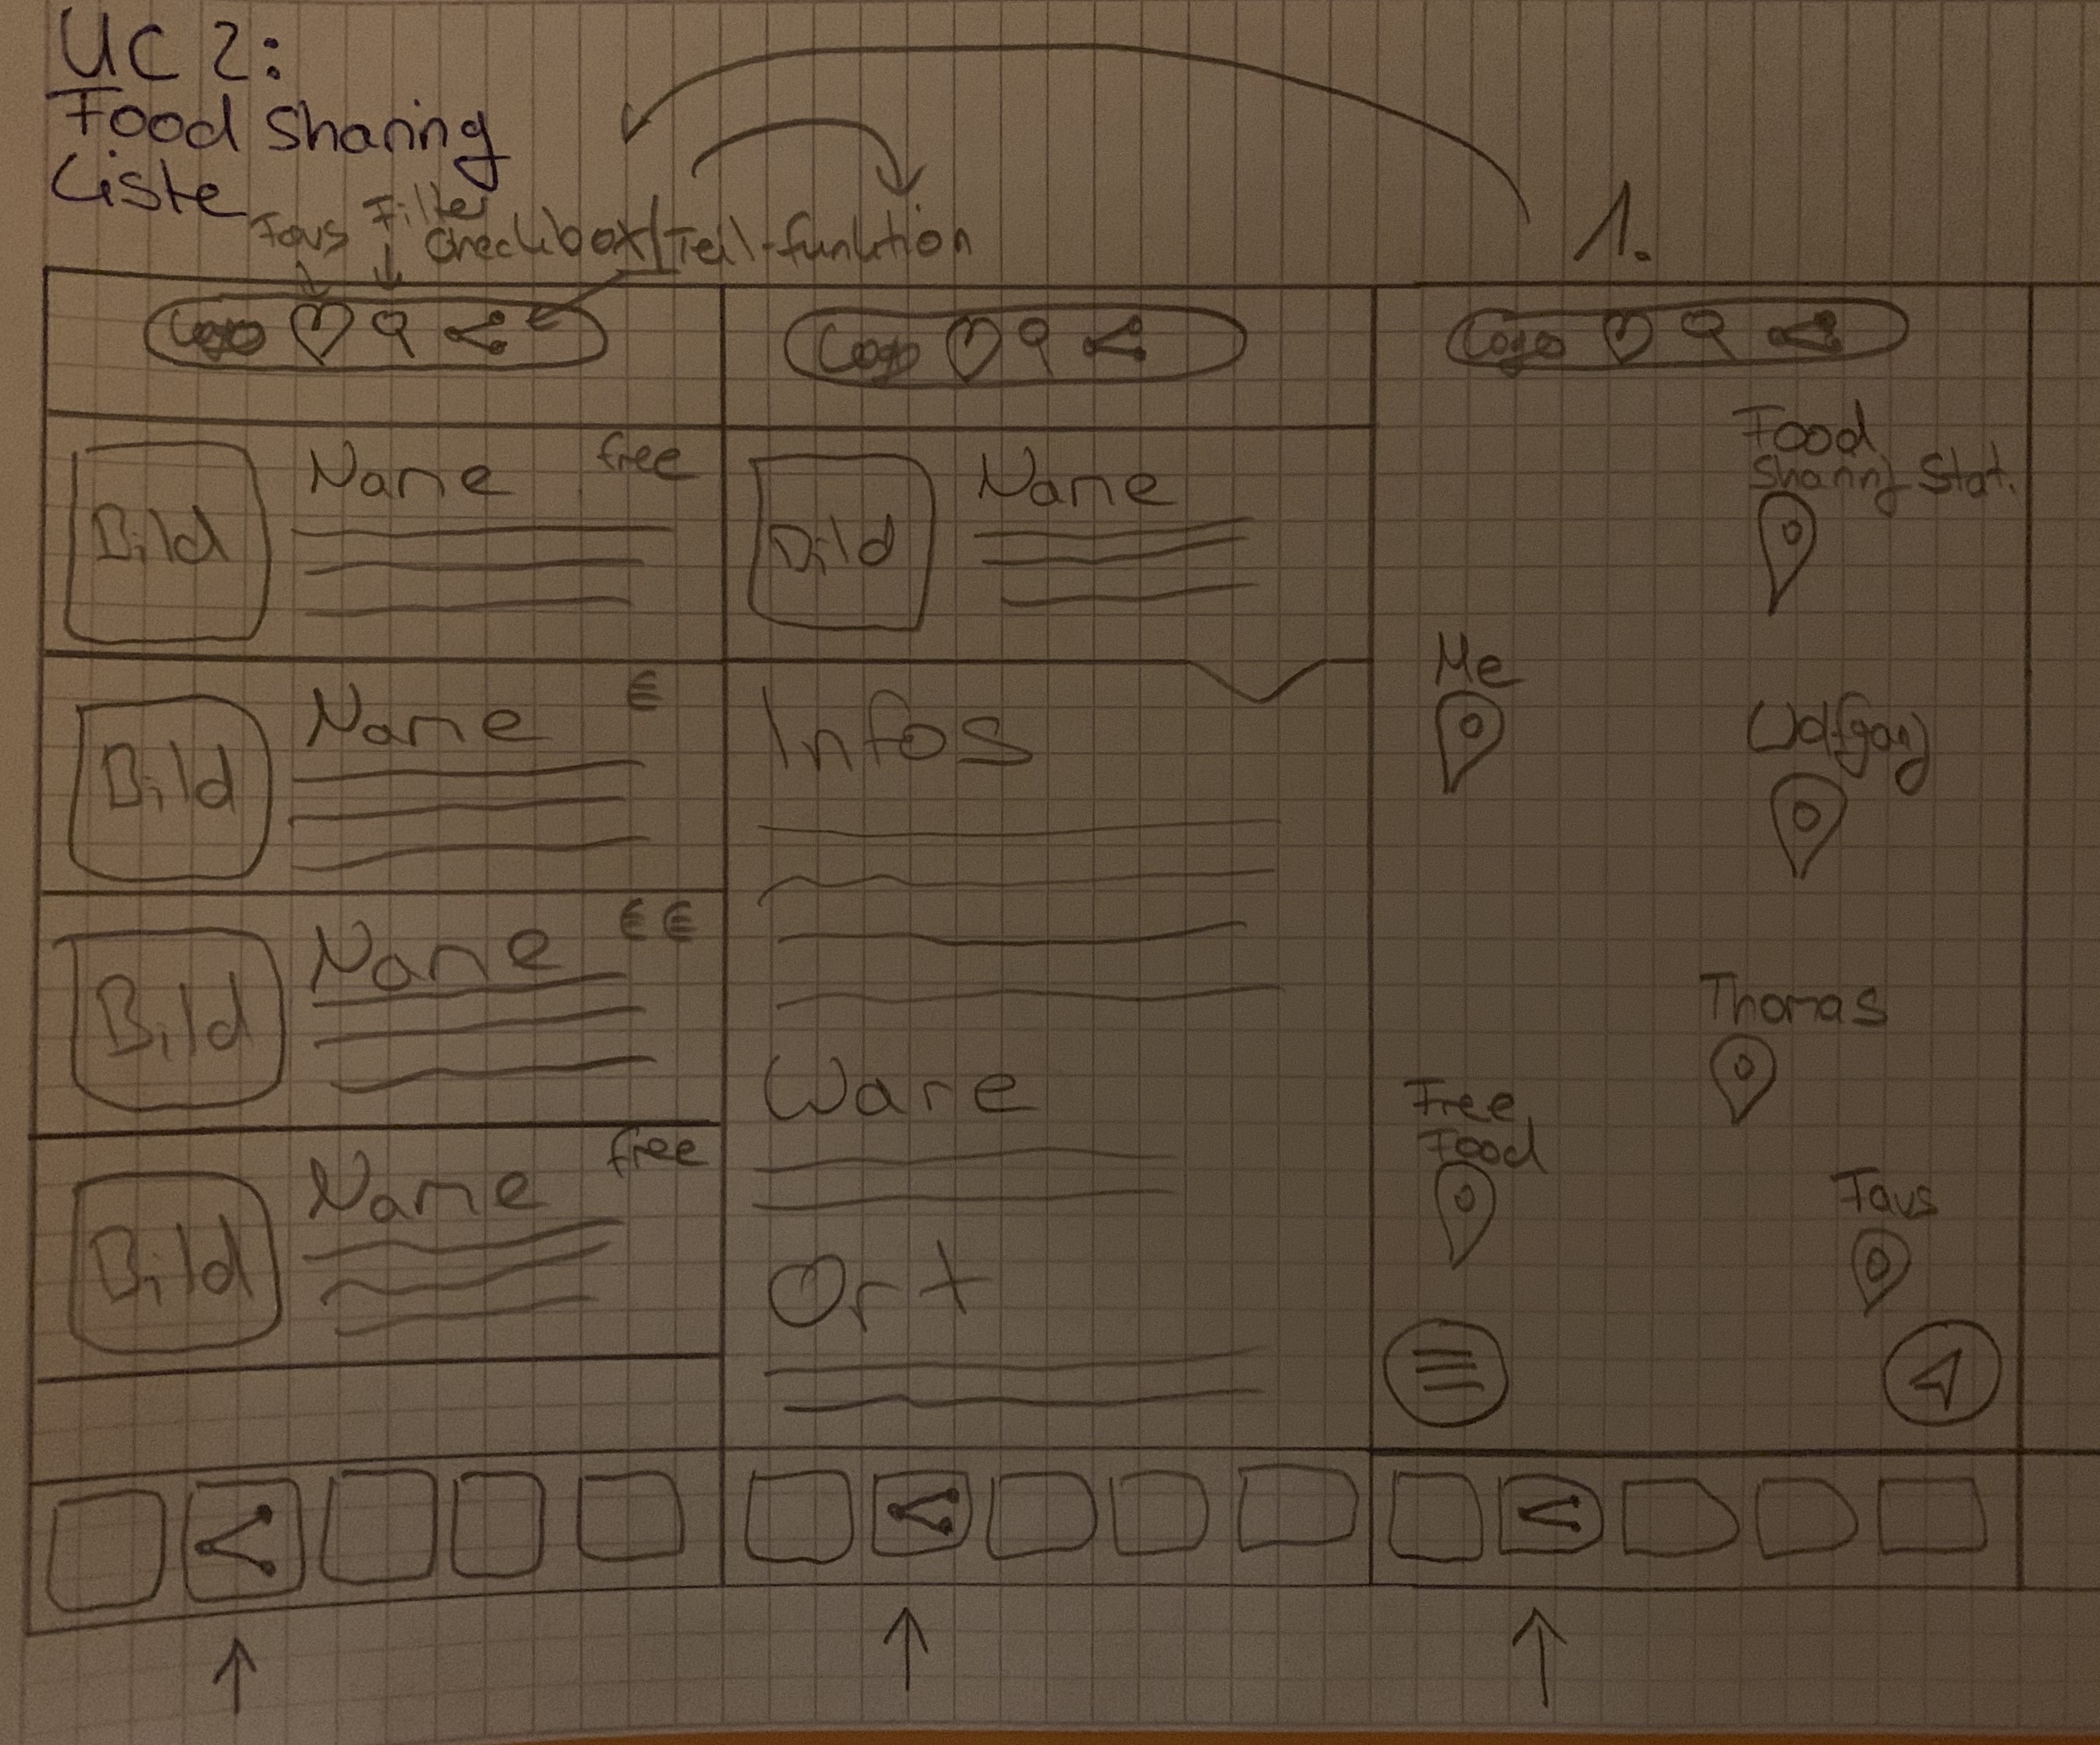 UC 2:
Food sharing
Liste
Favs Filter
Checkbox/Teil-funktion
1.
Logo
Bild
Name
free
Bild
Name
€
Bild
Name
€€
Bild
Name
free
Logo
Bild
Name
Infos
Ware
Ort
Logo
Food
Sharing Stat.
Me
Wolfgang
Thomas
Free
Food
Favs